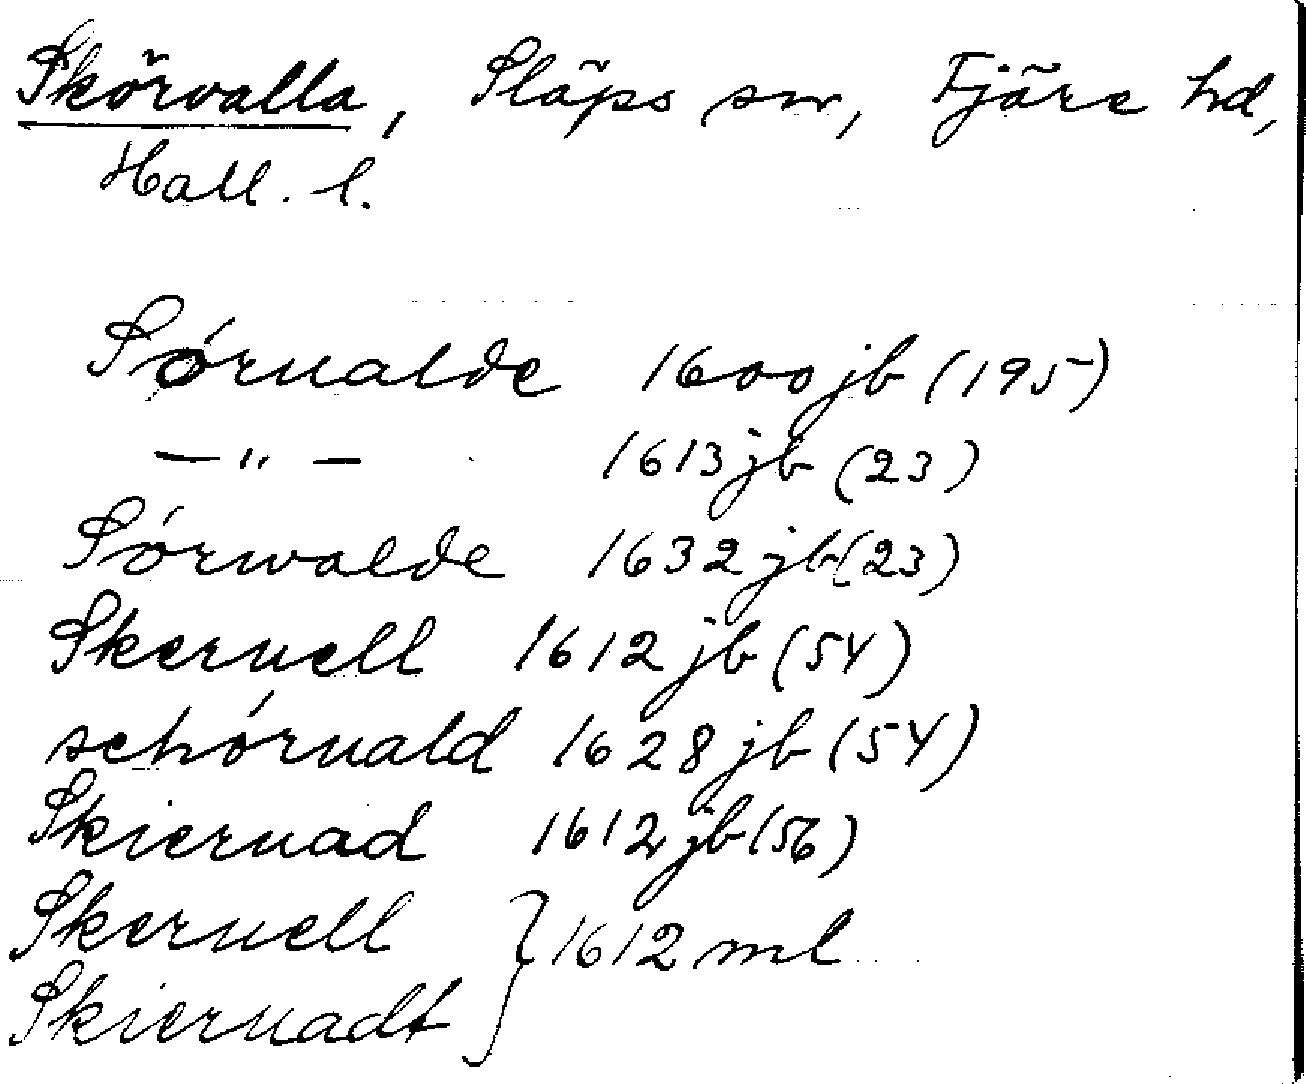 Skörvalla, Släps sn, Fjäre hd,
Hall. l.
Sórualde 1600 jb (195)
— " — 1613 jb (23)
Sórwalde 1632 jb (23)
Skeruell 1612 jb (54)
schóruald 1628 jb (54)
Skieruad 1612 jb (56)
Skeruell } 1612 ml
Skieruadt